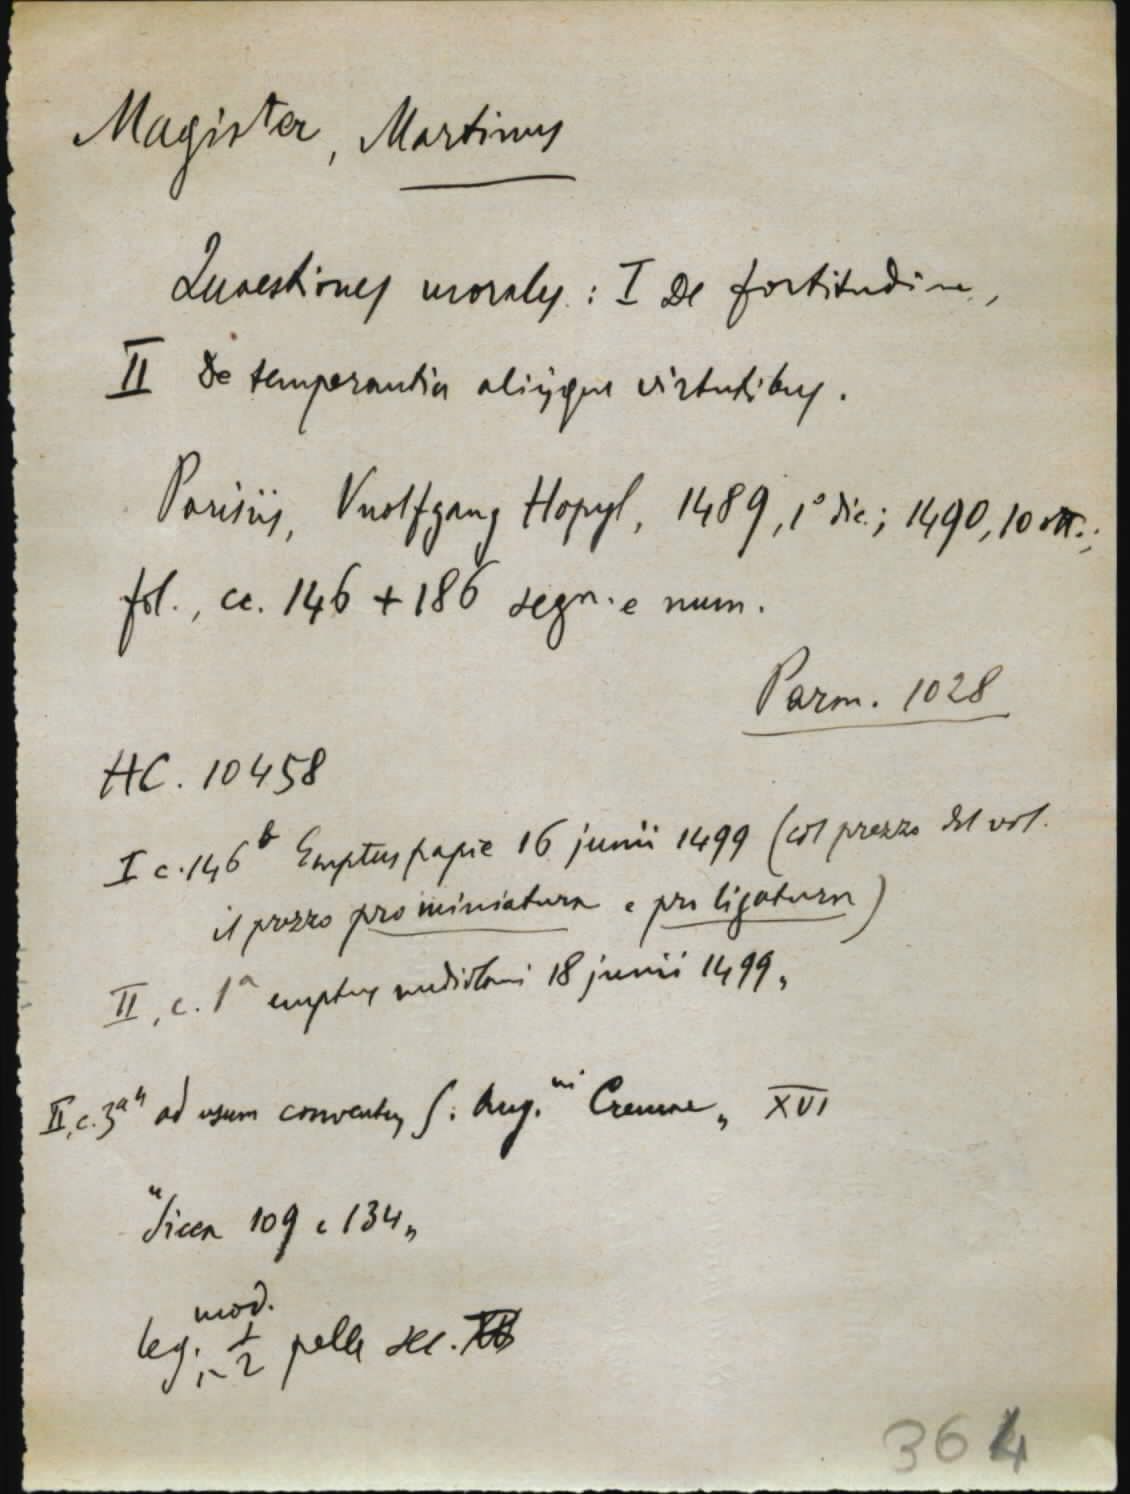 Magister, Martinus
Quaestiones morales: I De fortitudine,
II De temperantia aliisque virtutibus.
Parisiis, Vuolfgang Hopyl, 1489, 1° dic.; 1490, 10 ott.;
fol., cc. 146 + 186 segn. e num.
Parm. 1028
HC. 10458
I c. 146 b Emptus papie 16 junii 1499 (col prezzo del vol.
il prezzo pro miniatura e pro ligatura)
II, c. 1a emptus mediolani 18 junii 1499"
II, c. 3a " ad usum conventus S. Aug.ni Creme" XVI
" 109 e 134"
mod.
leg. in 1/2 pelle sec.
364